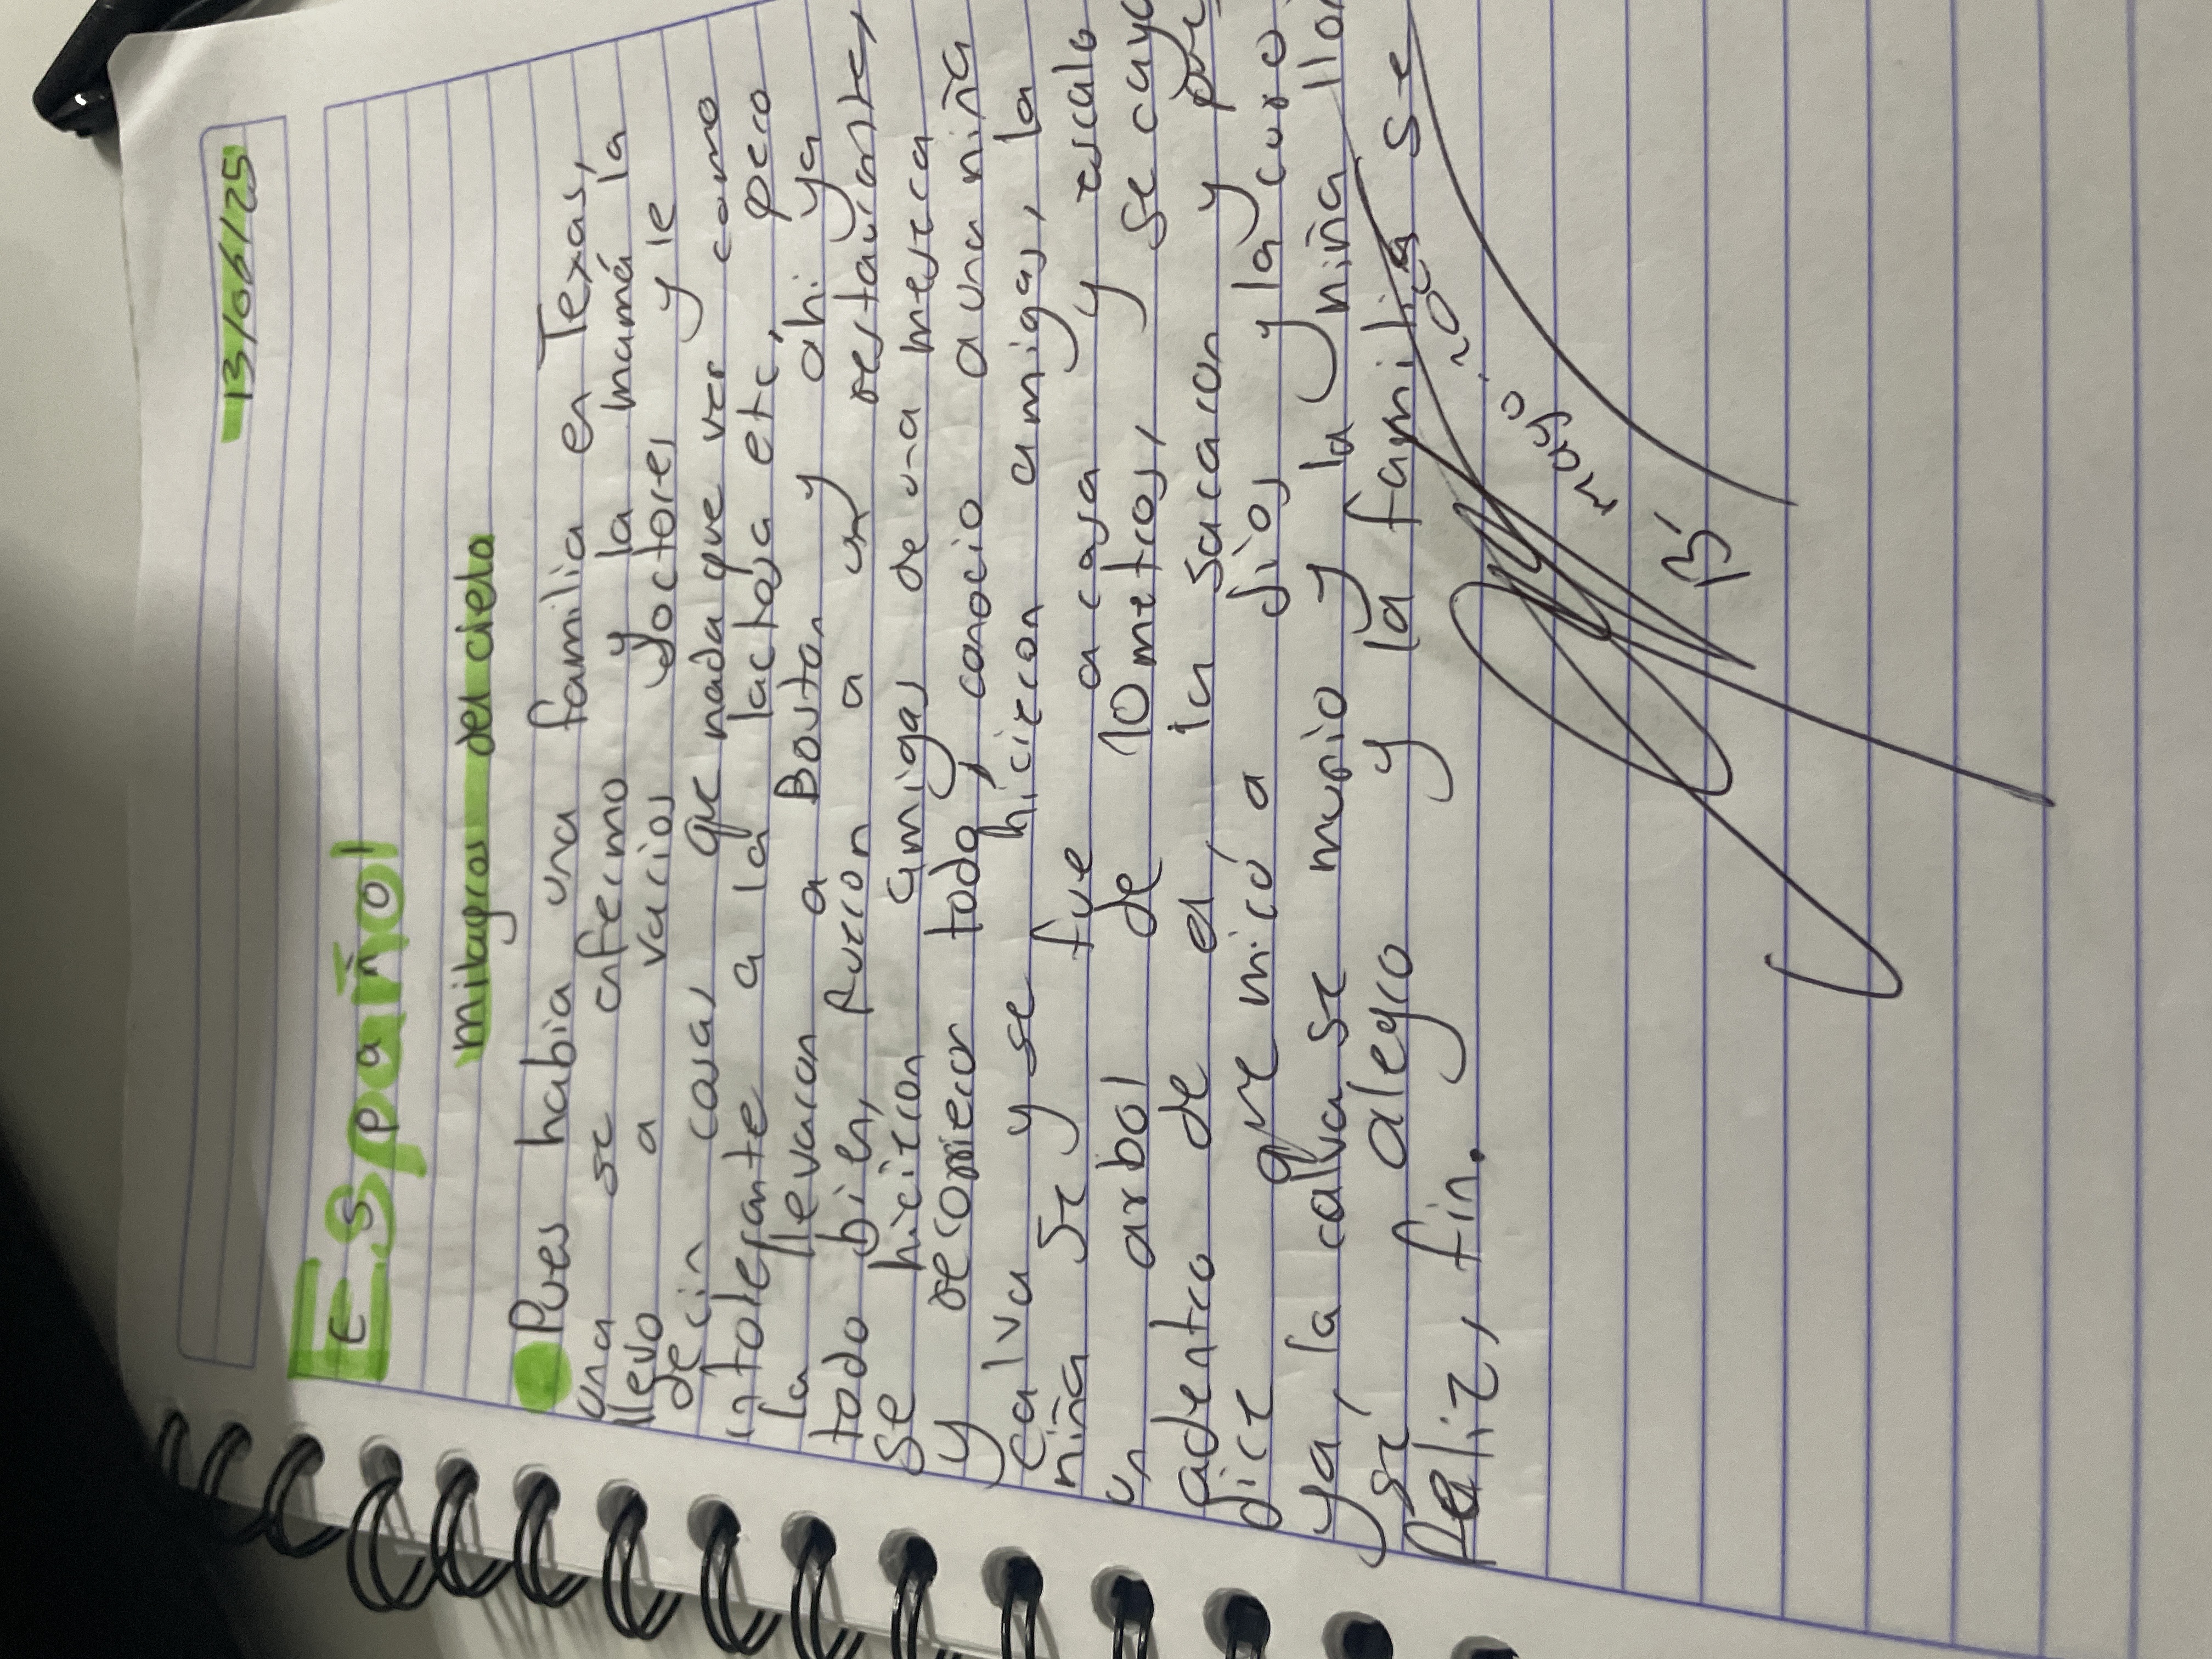 13/06/25
Español
milagros del cielo
Pues habia una familia en Texas,
una se enfermo y la mamá la
llevo a varios doctores y le
decin cosas que nada que ver como
intolerante a la lactosa etc, pero
la llevaron a Boston y ahi ya
todo bien, fueron a un restaurante,
se hicieron amigas de una mesera
y recorrieron todo, conocio a una niña
calva y se hicieron amigas, la
niña se fue a casa y escalo
un arbol de 10 metros, se cayo
adentro de el, la sacaron y
dice que miró a dios y la curo
ya, la calva se murio y la niña
se alegro y la familia se
feliz, fin.